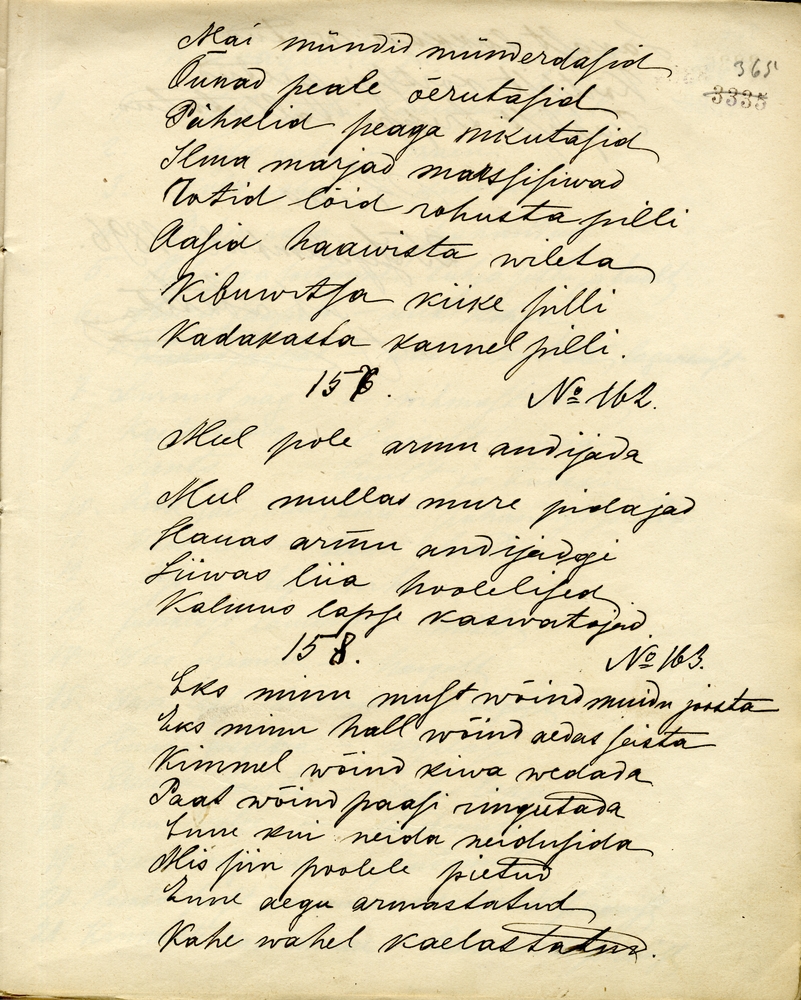 Mai mündid münderdasid
365
Õunad peale õerutasid
3335
Pähklid peaga nikutasid
Ilma marjad massisiwad
Totid lõid rohusta pilli
Aasid haawista wileta
Kibuwitsa kiike pilli
Kadakasta kannel pilli.
157. No 162.
Mul pole armu andijada
Mul mullas mure pidajad
Hauas armu andijadgi
Liiwas liia hoolelised
Kalmus lapse kaswatajad
158. No 163.
Eks minu must wõind muidu joosta
Eks minu hall wõind aedas seista
Kimmel wõind kiwa wedada
Paat wõind paasi ringutada
Enne kui neida neidusida
Mis siin poolele pietud
Enne aegu armastatud
Kahe wahel kaelastatud.